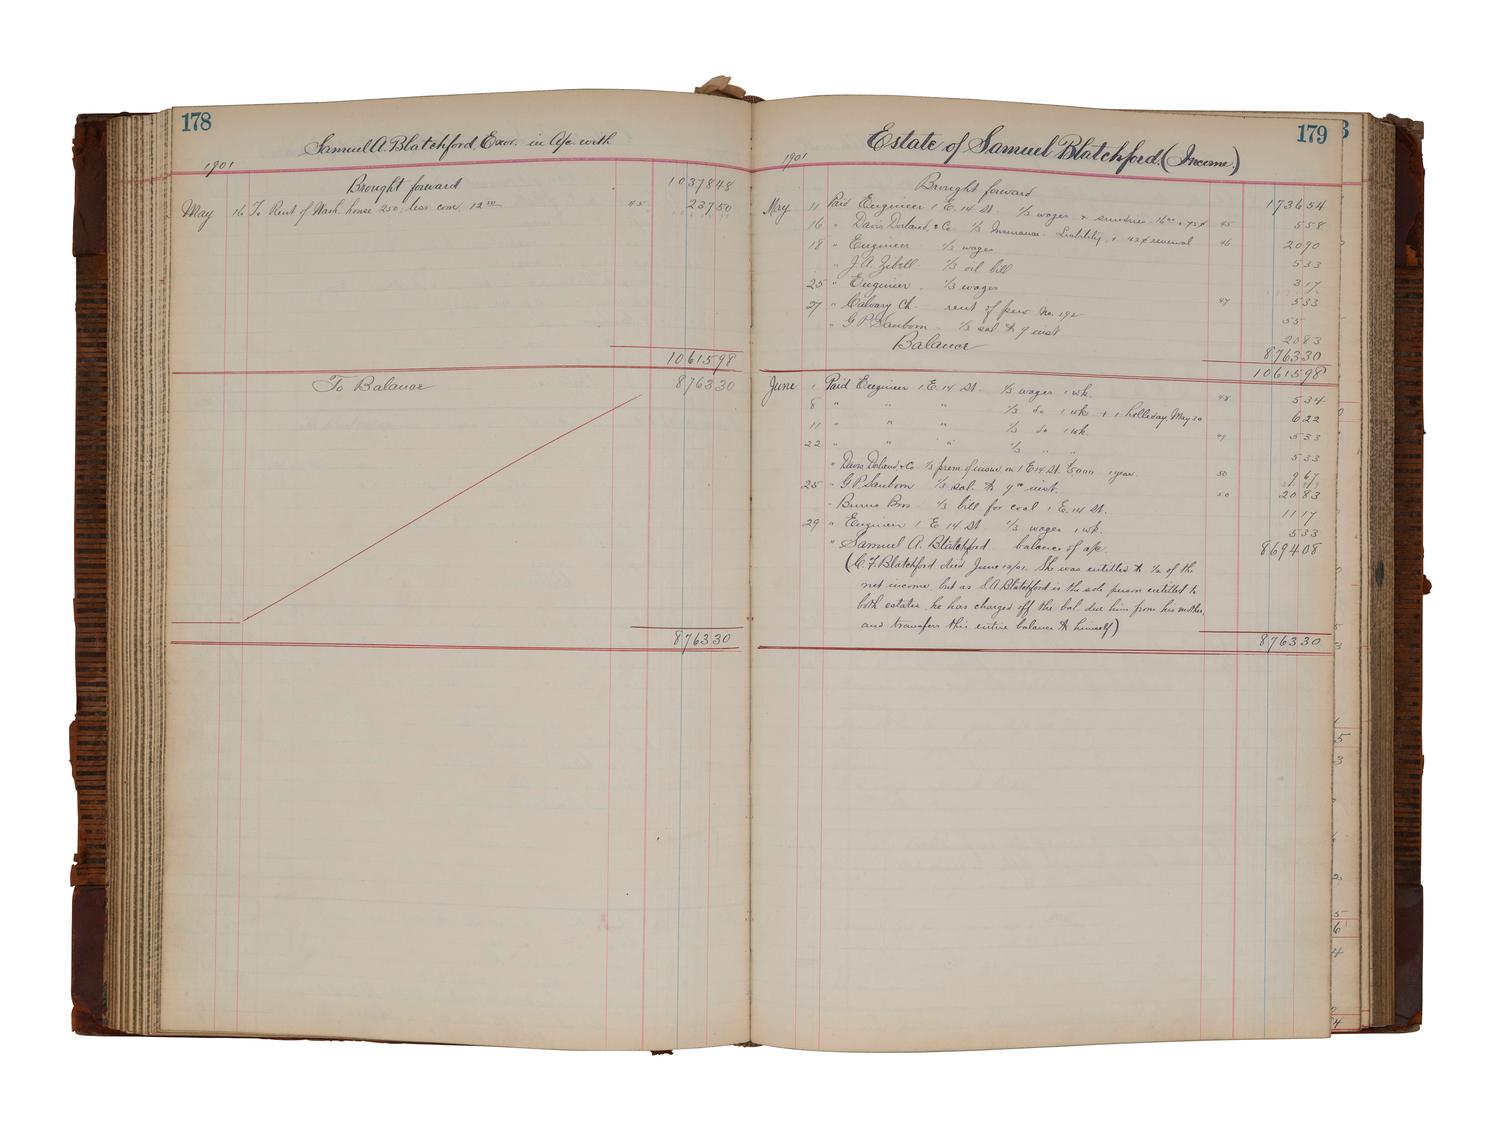 178
Samuel A. Blatchford Exor. in a/c with
1901
Brought forward 1037848
May 16 To Rent of Wash. house 250. less com. 12 50 45 23750
1061598
To Balance 876330
876330
179
Estate of Samuel Blatchford (Income.)
1901
Brought forward 173654
May 11 Paid Engineer 1 E. 14 St. 1/3 wages + sundries 16 00 + 75¢ 45 558
16 " Davis Dorland, & Co 1/3 Insurance - Liability, + 42¢ renewal 46 2090
18 " Engineer 1/3 wages 533
" J. A. Zibell 1/3 oil bill 317
25 " Engineer 1/3 wages 47 533
27 " Calvary Ch. rent of pew No. 192 55
" G. P. Sanborn 1/3 sal. to 9 inst 2083
Balance 876330
1061598
June 1 Paid Engineer 1 E. 14 St. 1/3 wages 1 wk. 48 534
8 " " " 1/3 do 1 wk. + 1 holliday, May 30 622
11 " " " 1/3 do 1 wk. 49 533
22 " " " 1/3 " " 533
" Davis Dorland, & Co. 1/3 prem. of insur. on 1 E 14 St. $5000 1 year 50 967
25 " G. P. Sanborn 1/3 sal. to 9th inst. 50 2083
" Burns Bros 1/3 bill for coal 1 E. 14 St. 1117
29 " Engineer 1 E 14 St 1/3 wages 1 wk. 533
" Samuel A. Blatchford balance of a/c. 869408
(C. F. Blatchford died June 12/01. She was entitled to 1/2 of the
net income, but as S. A. Blatchford is the sole person entitled to
both estates, he has charged off the bal. due him from his mother,
and transfers this entire balance to himself)
876330